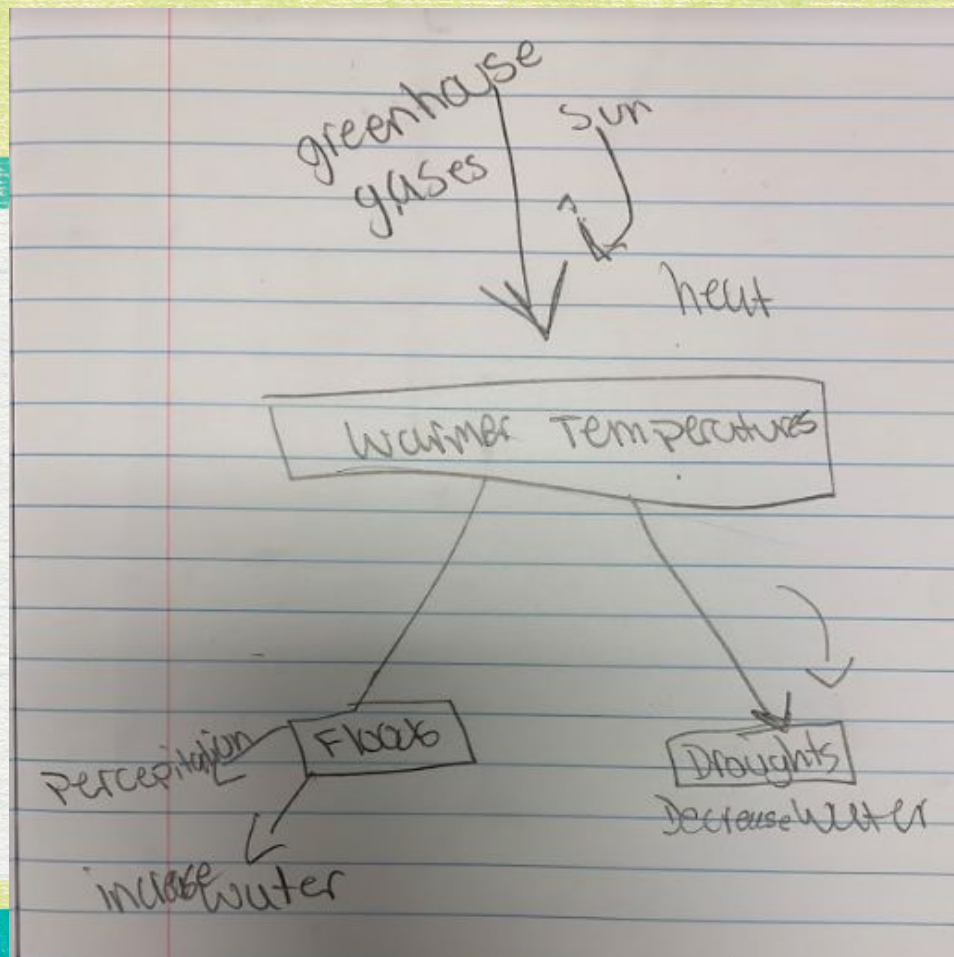 greenhouse
gases
Sun
heat
Warmer Temperatures
Floods
Droughts
percepitation
Decrease Water
increase water